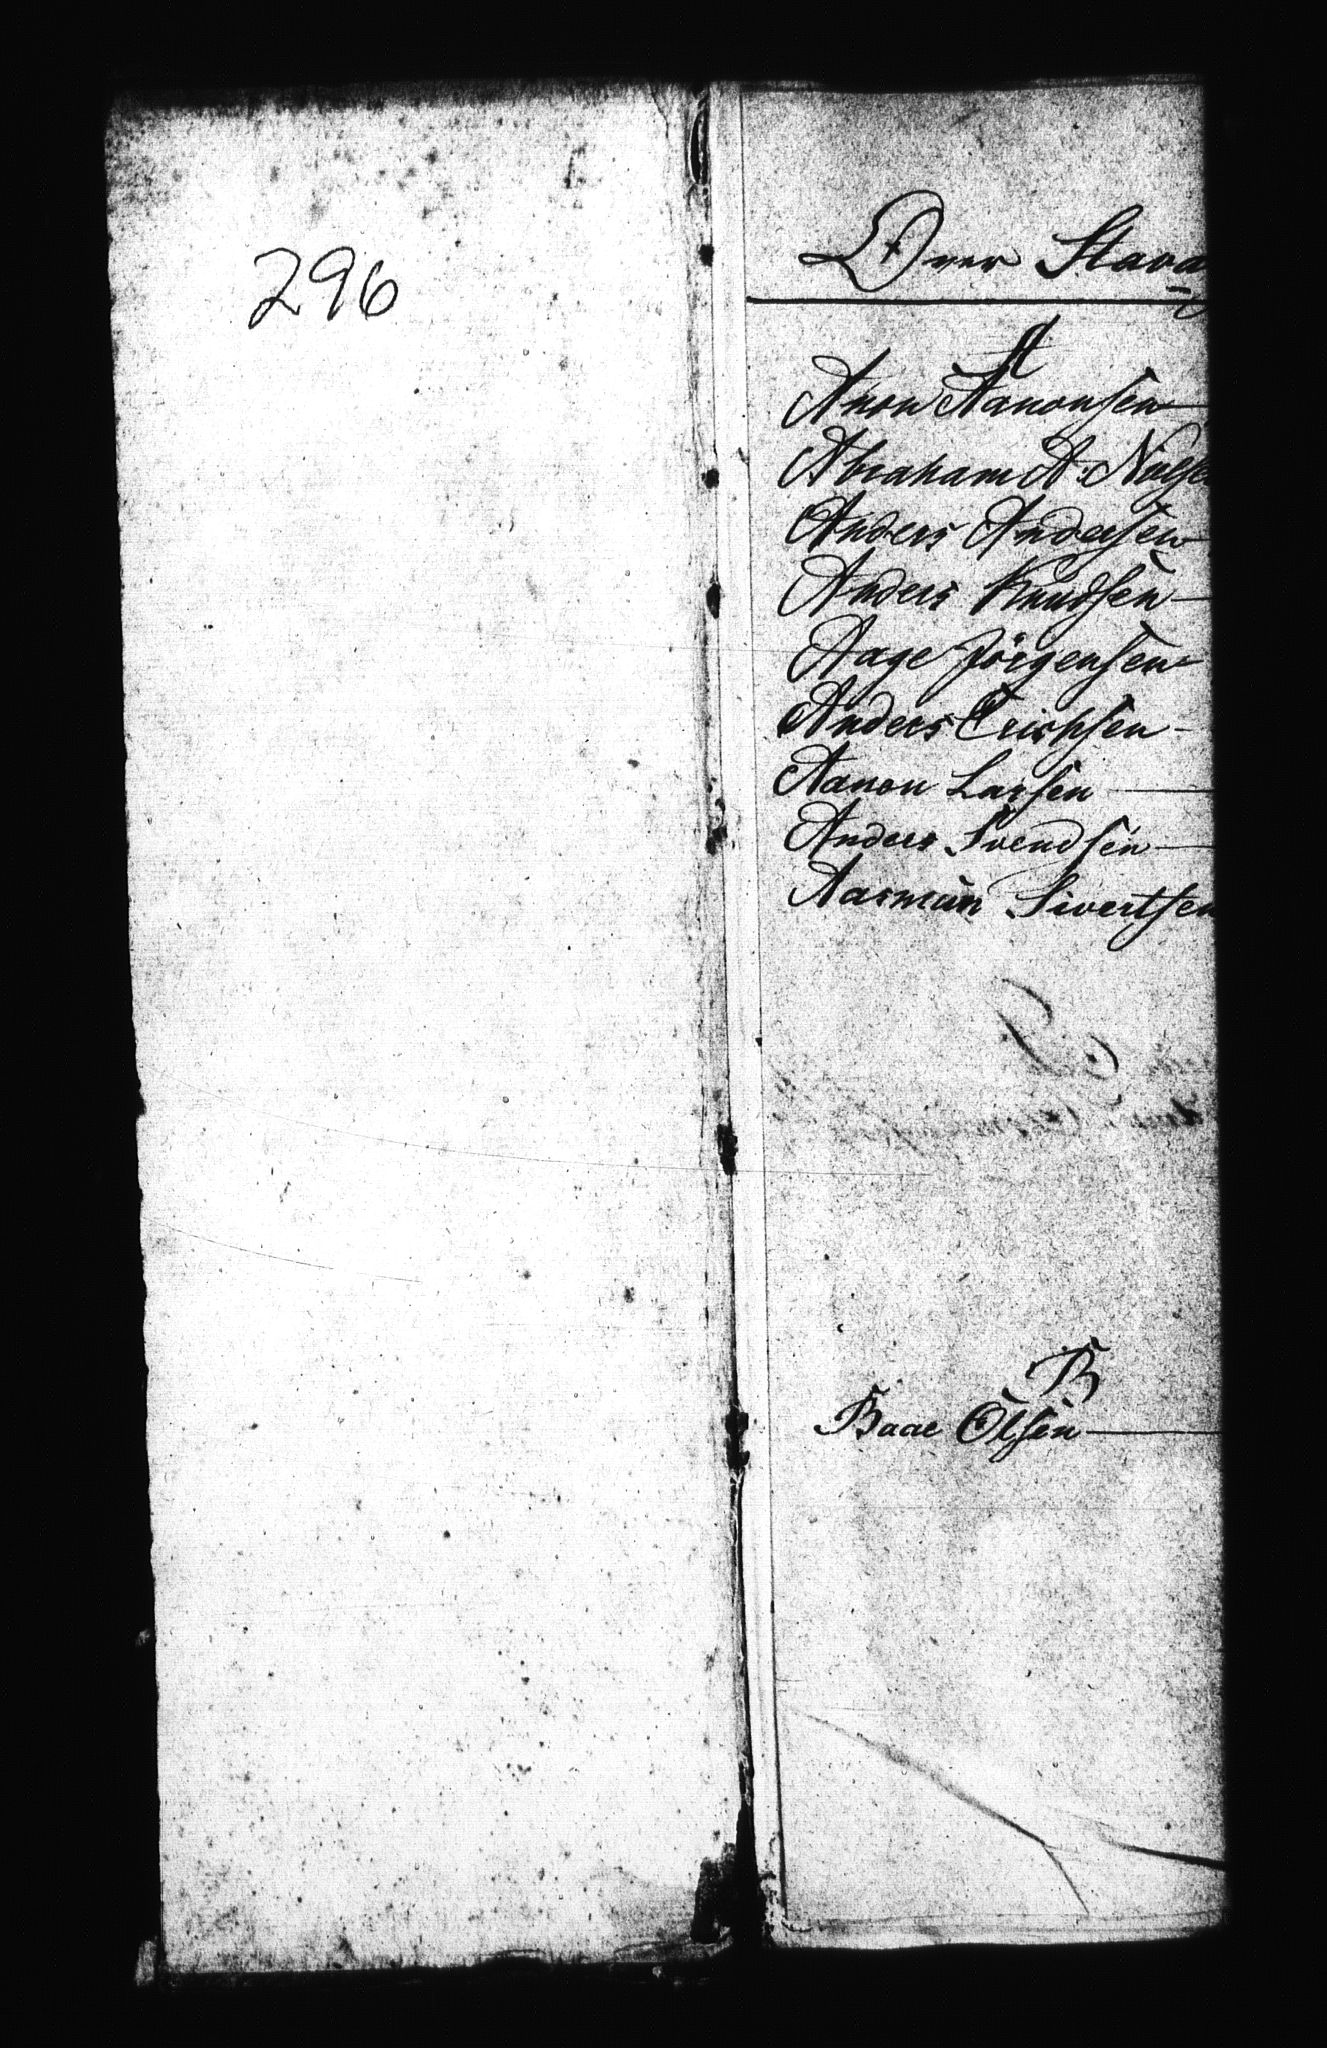 296
Over Stava
A
Anon Aanonsen
Abraham A. Nielse
Anders Andersen
Anders Knudsen
Aage Jörgensen
Anders Crispsen
Aanon Larsen
Anders Svendsen
Aasmun Sivertsen
B
Baae Olsen